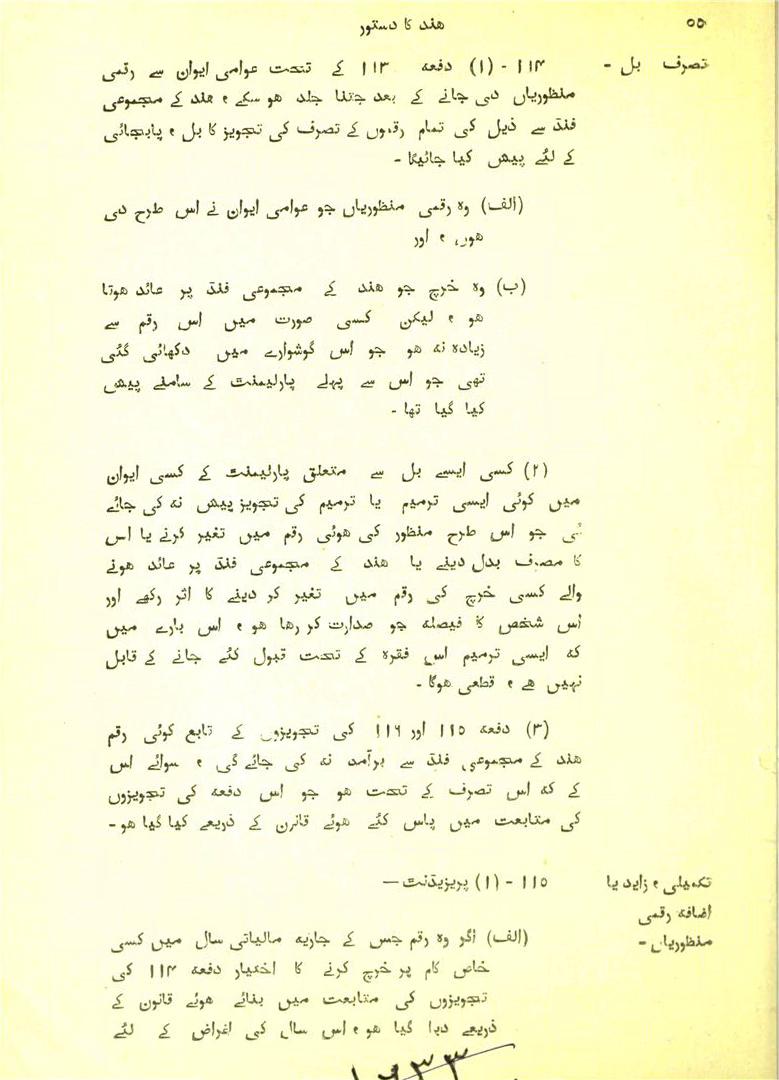 ھند کا دستور
۵۵
تصرف بل -
۱۱۴ - (۱) دفعہ ۱۱۳ کے تحت عوامی ایوان سے رقمی
منظوریاں دی جانے کے بعد جتنا جلد ھو سکے ، ھند کے مجموعی
فنڈ سے ذیل کی تمام رقموں کے تصرف کی تجویز کا بل ، پابجائی
کے لئے پیش کیا جائیگا -
(الف) وہ رقمی منظوریاں جو عوامی ایوان نے اس طرح دی
ھوں ، اور
(ب) وہ خرچ جو ھند کے مجموعی فنڈ پر عائد ھوتا
ھو ، لیکن کسی صورت میں اس رقم سے
زیادہ نہ ھو جو اس گوشوارے میں دکھائی گئی
تھی جو اس سے پہلے پارلیمنٹ کے سامنے پیش
کیا گیا تھا -
(۲) کسی ایسے بل سے متعلق پارلیمنٹ کے کسی ایوان
میں کوئی ایسی ترمیم یا ترمیم کی تجویز پیش نہ کی جائے
گی جو اس طرح منظور کی ھوئی رقم میں تغیر کرنے یا اس
کا مصرف بدل دینے یا ھند کے مجموعی فنڈ پر عائد ھونے
والے کسی خرچ کی رقم میں تغیر کر دینے کا اثر رکھے اور
اس شخص کا فیصلہ جو صدارت کر رھا ھو ، اس بارے میں
کہ ایسی ترمیم اس فقرہ کے تحت قبول کئے جانے کے قابل
نہیں ھے ، قطعی ھوگا -
(۳) دفعہ ۱۱۵ اور ۱۱۶ کی تجویزوں کے تابع کوئی رقم
ھند کے مجموعی فنڈ سے برآمد نہ کی جائے گی ، سوائے اس
کے کہ اس تصرف کے تحت ھو جو اس دفعہ کی تجویزوں
کی متابعت میں پاس کئے ھوئے قانون کے ذریعے کیا گیا ھو -
تکمیلی ، زاید یا
اضافہ رقمی
منظوریاں -
۱۱۵ - (۱) پریزیڈنٹ —
(الف) اگر وہ رقم جس کے جاریہ مالیاتی سال میں کسی
خاص کام پر خرچ کرنے کا اختیار دفعہ ۱۱۴ کی
تجویزوں کی متابعت میں بنائے ھوئے قانون کے
ذریعے دیا گیا ھو ، اس سال کی اغراض کے لئے